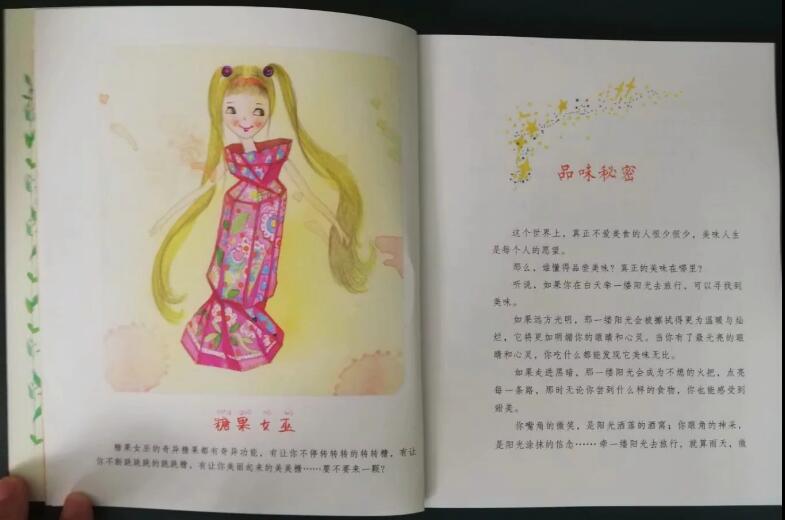 糖果女巫
糖果女巫的奇异糖果都有奇异功能，有让你不停转转转的转转糖，有让
你不断跳跳跳的跳跳糖，有让你美丽起来的美美糖……要不要来一颗？
品味秘密
这个世界上，真正不爱美食的人很少很少，美味人生
是每个人的愿望。
那么，谁懂得品尝美味？真正的美味在哪里？
听说，如果你在白天牵一缕阳光去旅行，可以寻找到
美味。
如果远方光明，那一缕阳光会被擦拭得更为温暖与灿
烂，它将更加明媚你的眼睛和心灵。当你有了最光亮的眼
睛和心灵，你吃什么都能发现它美味无比。
如果走进黑暗，那一缕阳光会成为不熄的火把，点亮
每一条路，那时无论你尝到什么样的食物，你也能感受到
甜美。
你嘴角的微笑，是阳光洒落的酒窝；你眼角的神采，
是阳光涂抹的信念……牵一缕阳光去旅行，就算雨天，微